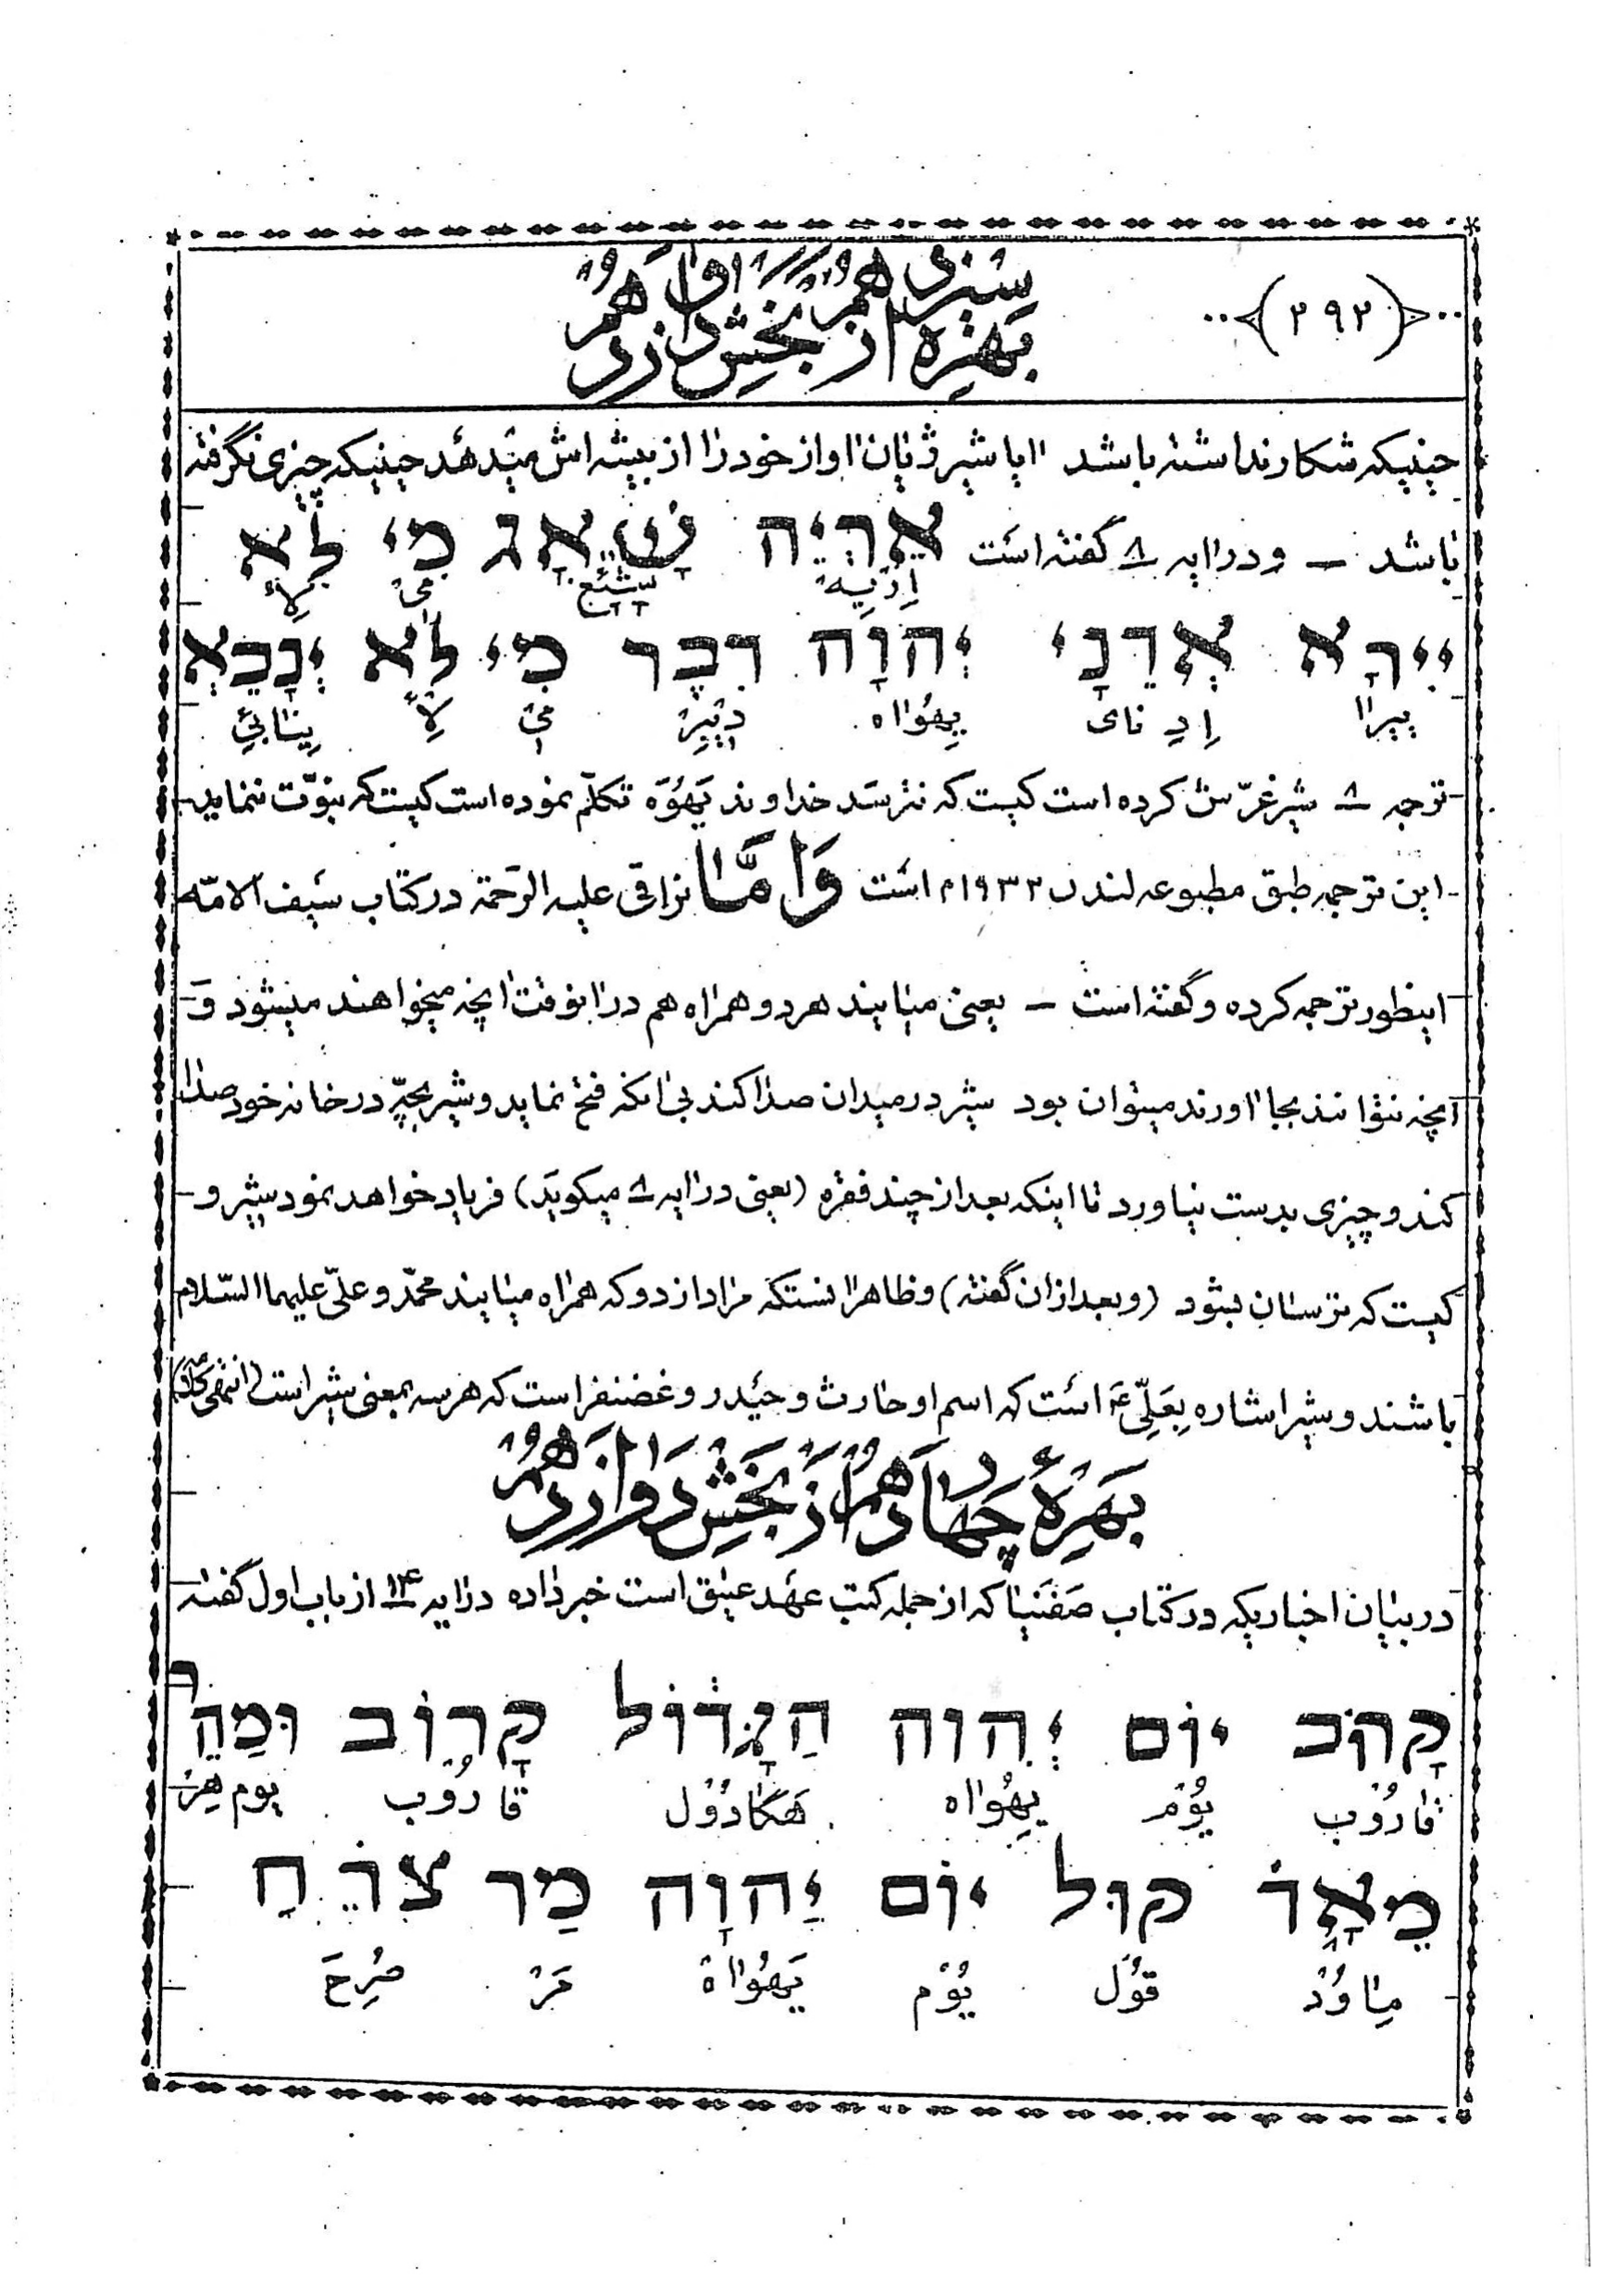 ﴿۲۹۲﴾
بهره سیزدهم
از بخش دوازدهم
حینیکه شکار نداشته باشد ایا شیر ژیان اواز خود را از بیشه اش میدهد حینیکه چیزی نگرفته
باشد — و در ایه ۸ گفته است אַרְיֵה שָׁאָג מִי לֹא
اِرْیِه شَئَج می لا
יִירָא אֲדֹנָי יְהוָה דִּבֶּר מִי לֹא יִנָּבֵא
ییرا اِدِنای یِهُوااه دِیْبِرْ می لا یِنابِئ
ترجمه ۸ شیر غرّش کرده است کیست که نترسد خداوند یَهُوَه تکلّم نموده است کیست که نبوّت ننماید
این ترجمه طبق مطبوعه لندن ۱۹۳۲م است وَاَمَّا نراقی علیه الرّحمة در کتاب سیف الامّه
اینطور ترجمه کرده و گفته است — یعنی میایند هر دو همراه هم در انوقت انچه میخواهند میشود وَ
انچه نتوانند بجا اورند میتوان بود شیر در میدان صدا کند بی انکه فتح نماید و شیر بچّه در خانه خود صدا
کند و چیزی بدست نیاورد تا اینکه بعد از چند فقره (یعنی در ایه ۸ میگوید) فریاد خواهد نمود شیر و
کیست که ترسان نشود (و بعد ازان گفته) و ظاهر انستکه مراد از دو که همراه میایند محمّد و علیّ علیهما السّلام
باشند و شیر اشاره بِعَلِیّ ع است که اسم او حارث و حیدر و غضنفر است که هر سه بمعنی شیر است (انتهی کلامه)
بهرهٔ چهاردهم از بخش دوازدهم
در بیان اخباریکه در کتاب صَفَنیا که از جمله کتب عهد عتیق است خبر داده در ایه ۱۴ از باب اول گفته
קָרוֹב יוֹם יְהוָה הַגָּדוֹל קָרוֹב וּמַהֵר
قاروُب یوُم یِهُوااه هَکادوُل قاروُب یوم هِر
מְאֹד קוֹל יוֹם יַהוָה מַר צֹרֵחַ
مِاوُد قوُل یوُم یَهُوااه مَر صُرِحَ